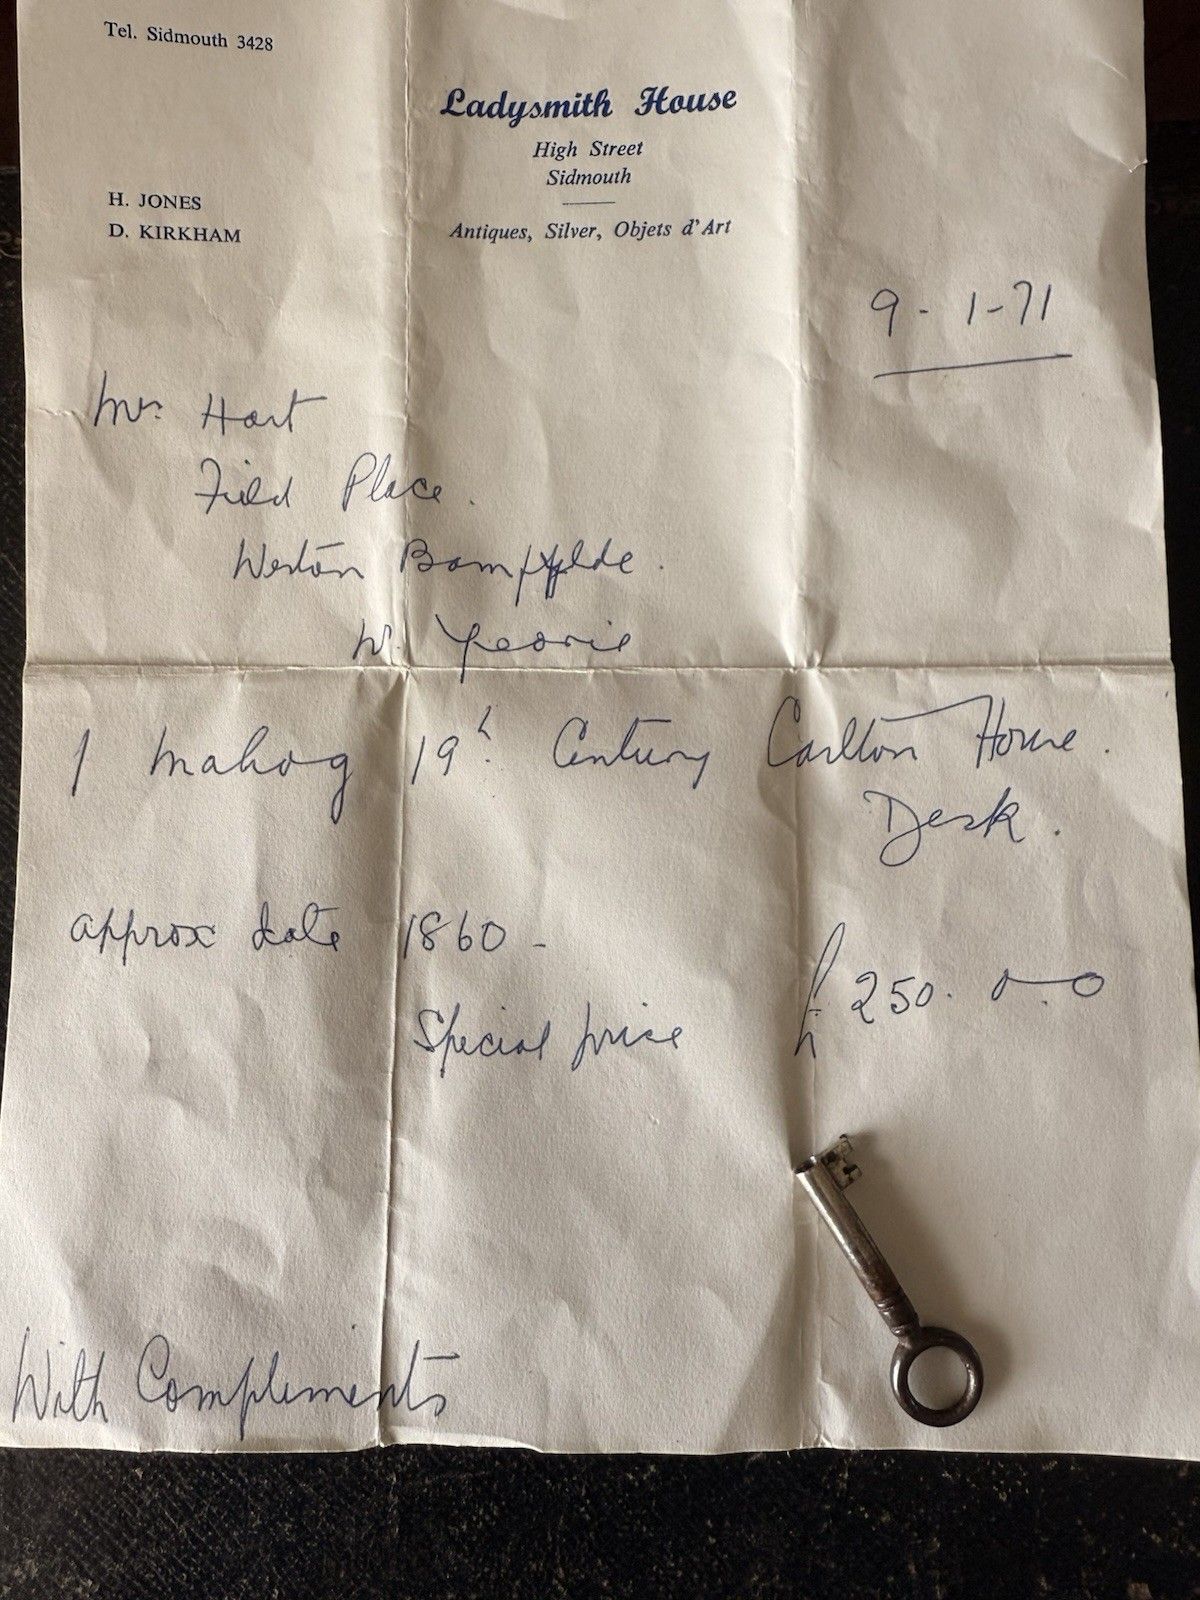 Tel. Sidmouth 3428
Ladysmith House
High Street
Sidmouth
Antiques, Silver, Objets d'Art
H. JONES
D. KIRKHAM
9-1-71
Mr. Hart
Field Place.
Weston Bampfylde.
Nr. Yeovil
1 Mahog 19th Century Carlton House.
Desk.
approx date 1860-
Special price £250.0.0
With Compliments